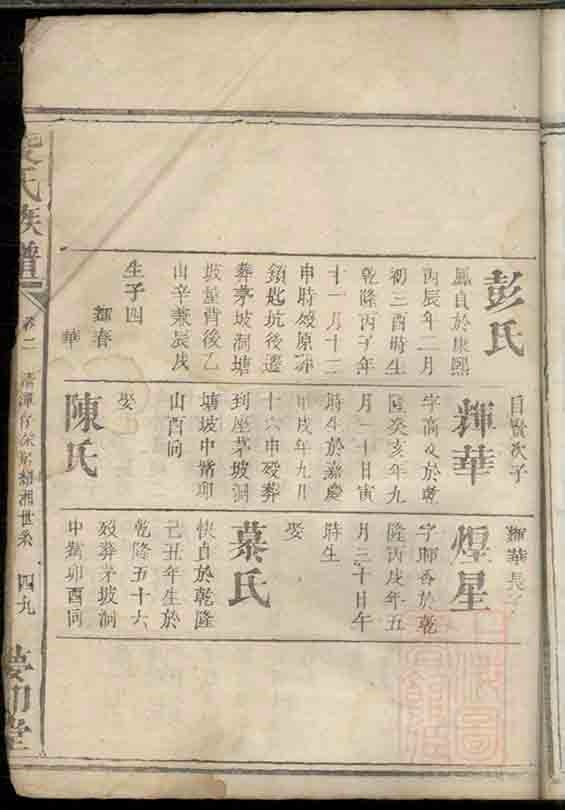 彭氏
鳳貞於康熙
丙辰年二月
初三酉時生
乾隆丙子年
十一月十三
申時歿原葬
鎖匙坑後遷
葬茅坡洞塘
坡屋背後乙
山辛兼辰戌
生子四
輝春
華
自賢次子
輝華
字高文於乾
隆癸亥年九
月三十日寅
時生於嘉慶
甲戌年九月
十六申歿葬
到座茅坡洞
塘坡中嘴卯
山酉向
娶
陳氏
輝華長子
煌星
字耶香於乾
隆丙戌年五
月三十日午
時生
娶
慕氏
快貞於乾隆
己丑年生於
乾隆五十六
歿葬茅坡洞
中嘴卯酉向
氏族譜
卷二
世系
四九
堂